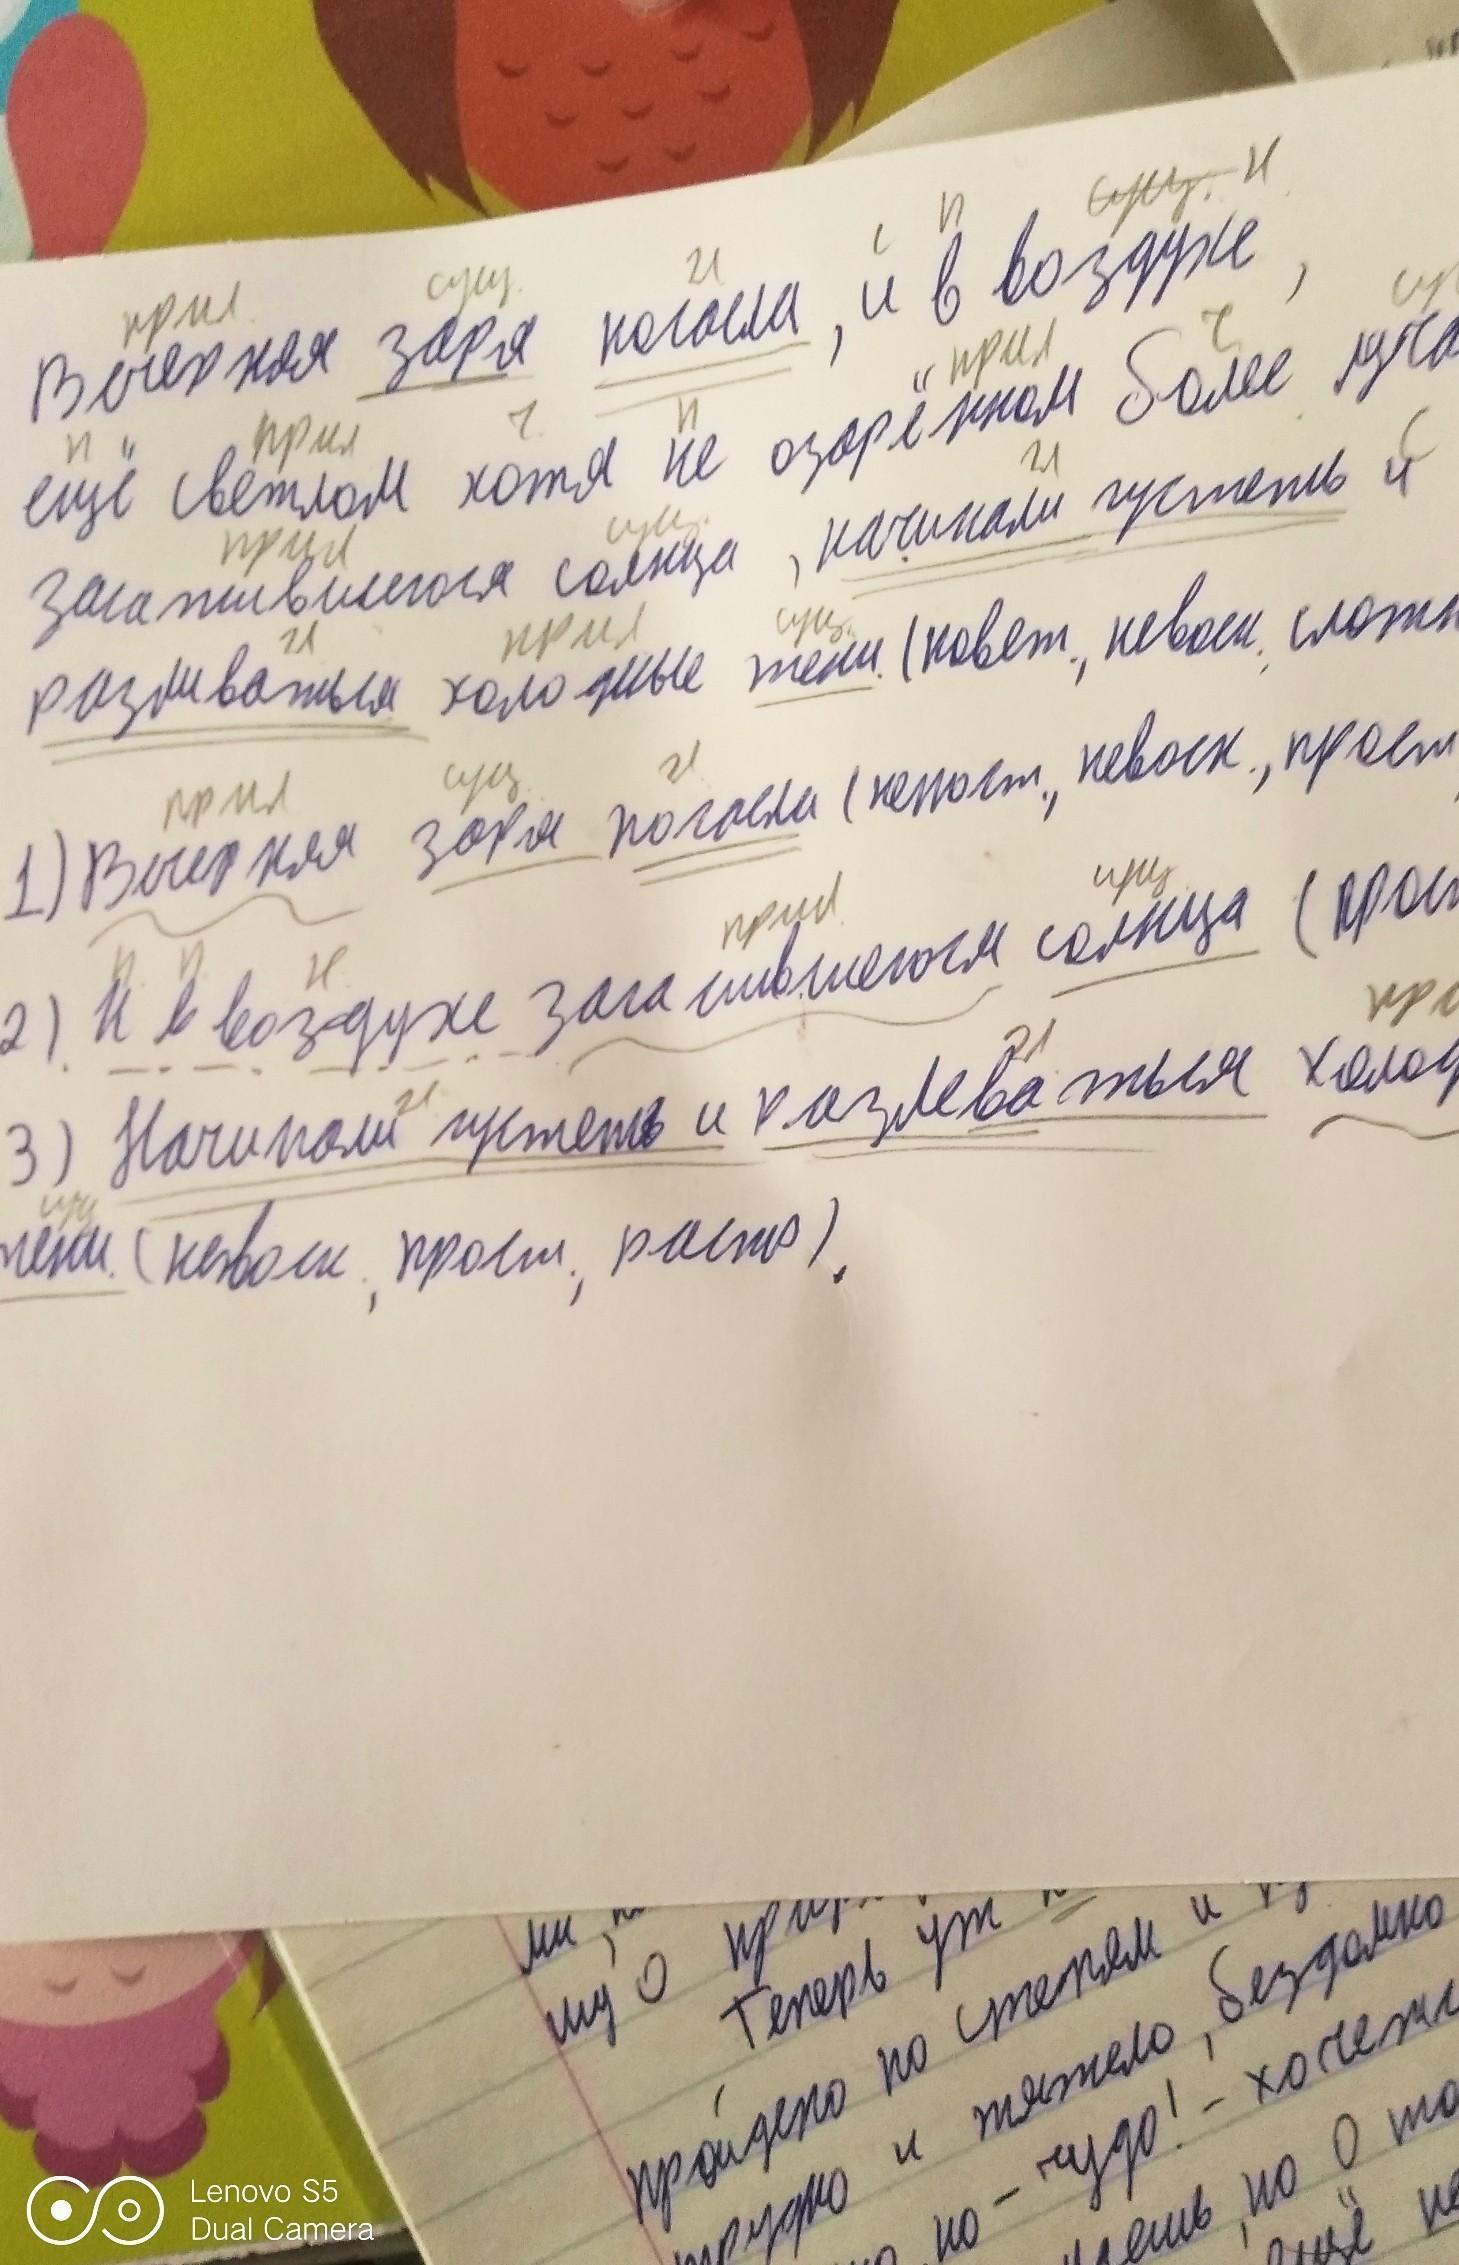 прил сущ. гл с п сущ. н
Вечерняя заря погасла, и в воздухе,
п прил ч п прил ч
ещё светлом хотя не озарённом более луча
прил сущ. гл с
закатившегося солнца, начинали густеть и
гл прил сущ.
разливаться холодные тени. (повест., невоск., сложн
прил сущ гл
1) Вечерняя заря погасла (непост., невоск., прост
п п н прил сущ
2). И в воздухе закатившегося солнца (прост
гл гл при
3) Начинали густеть и разлеваться холод
сущ
тени. (невоск, прост., распр).
ми, по
шу О
Теперь уж
пройдено по степям и
трудно и тяжело, бездомно
но - чудо! - хочетс
но О то
ещё не
Lenovo S5
Dual Camera